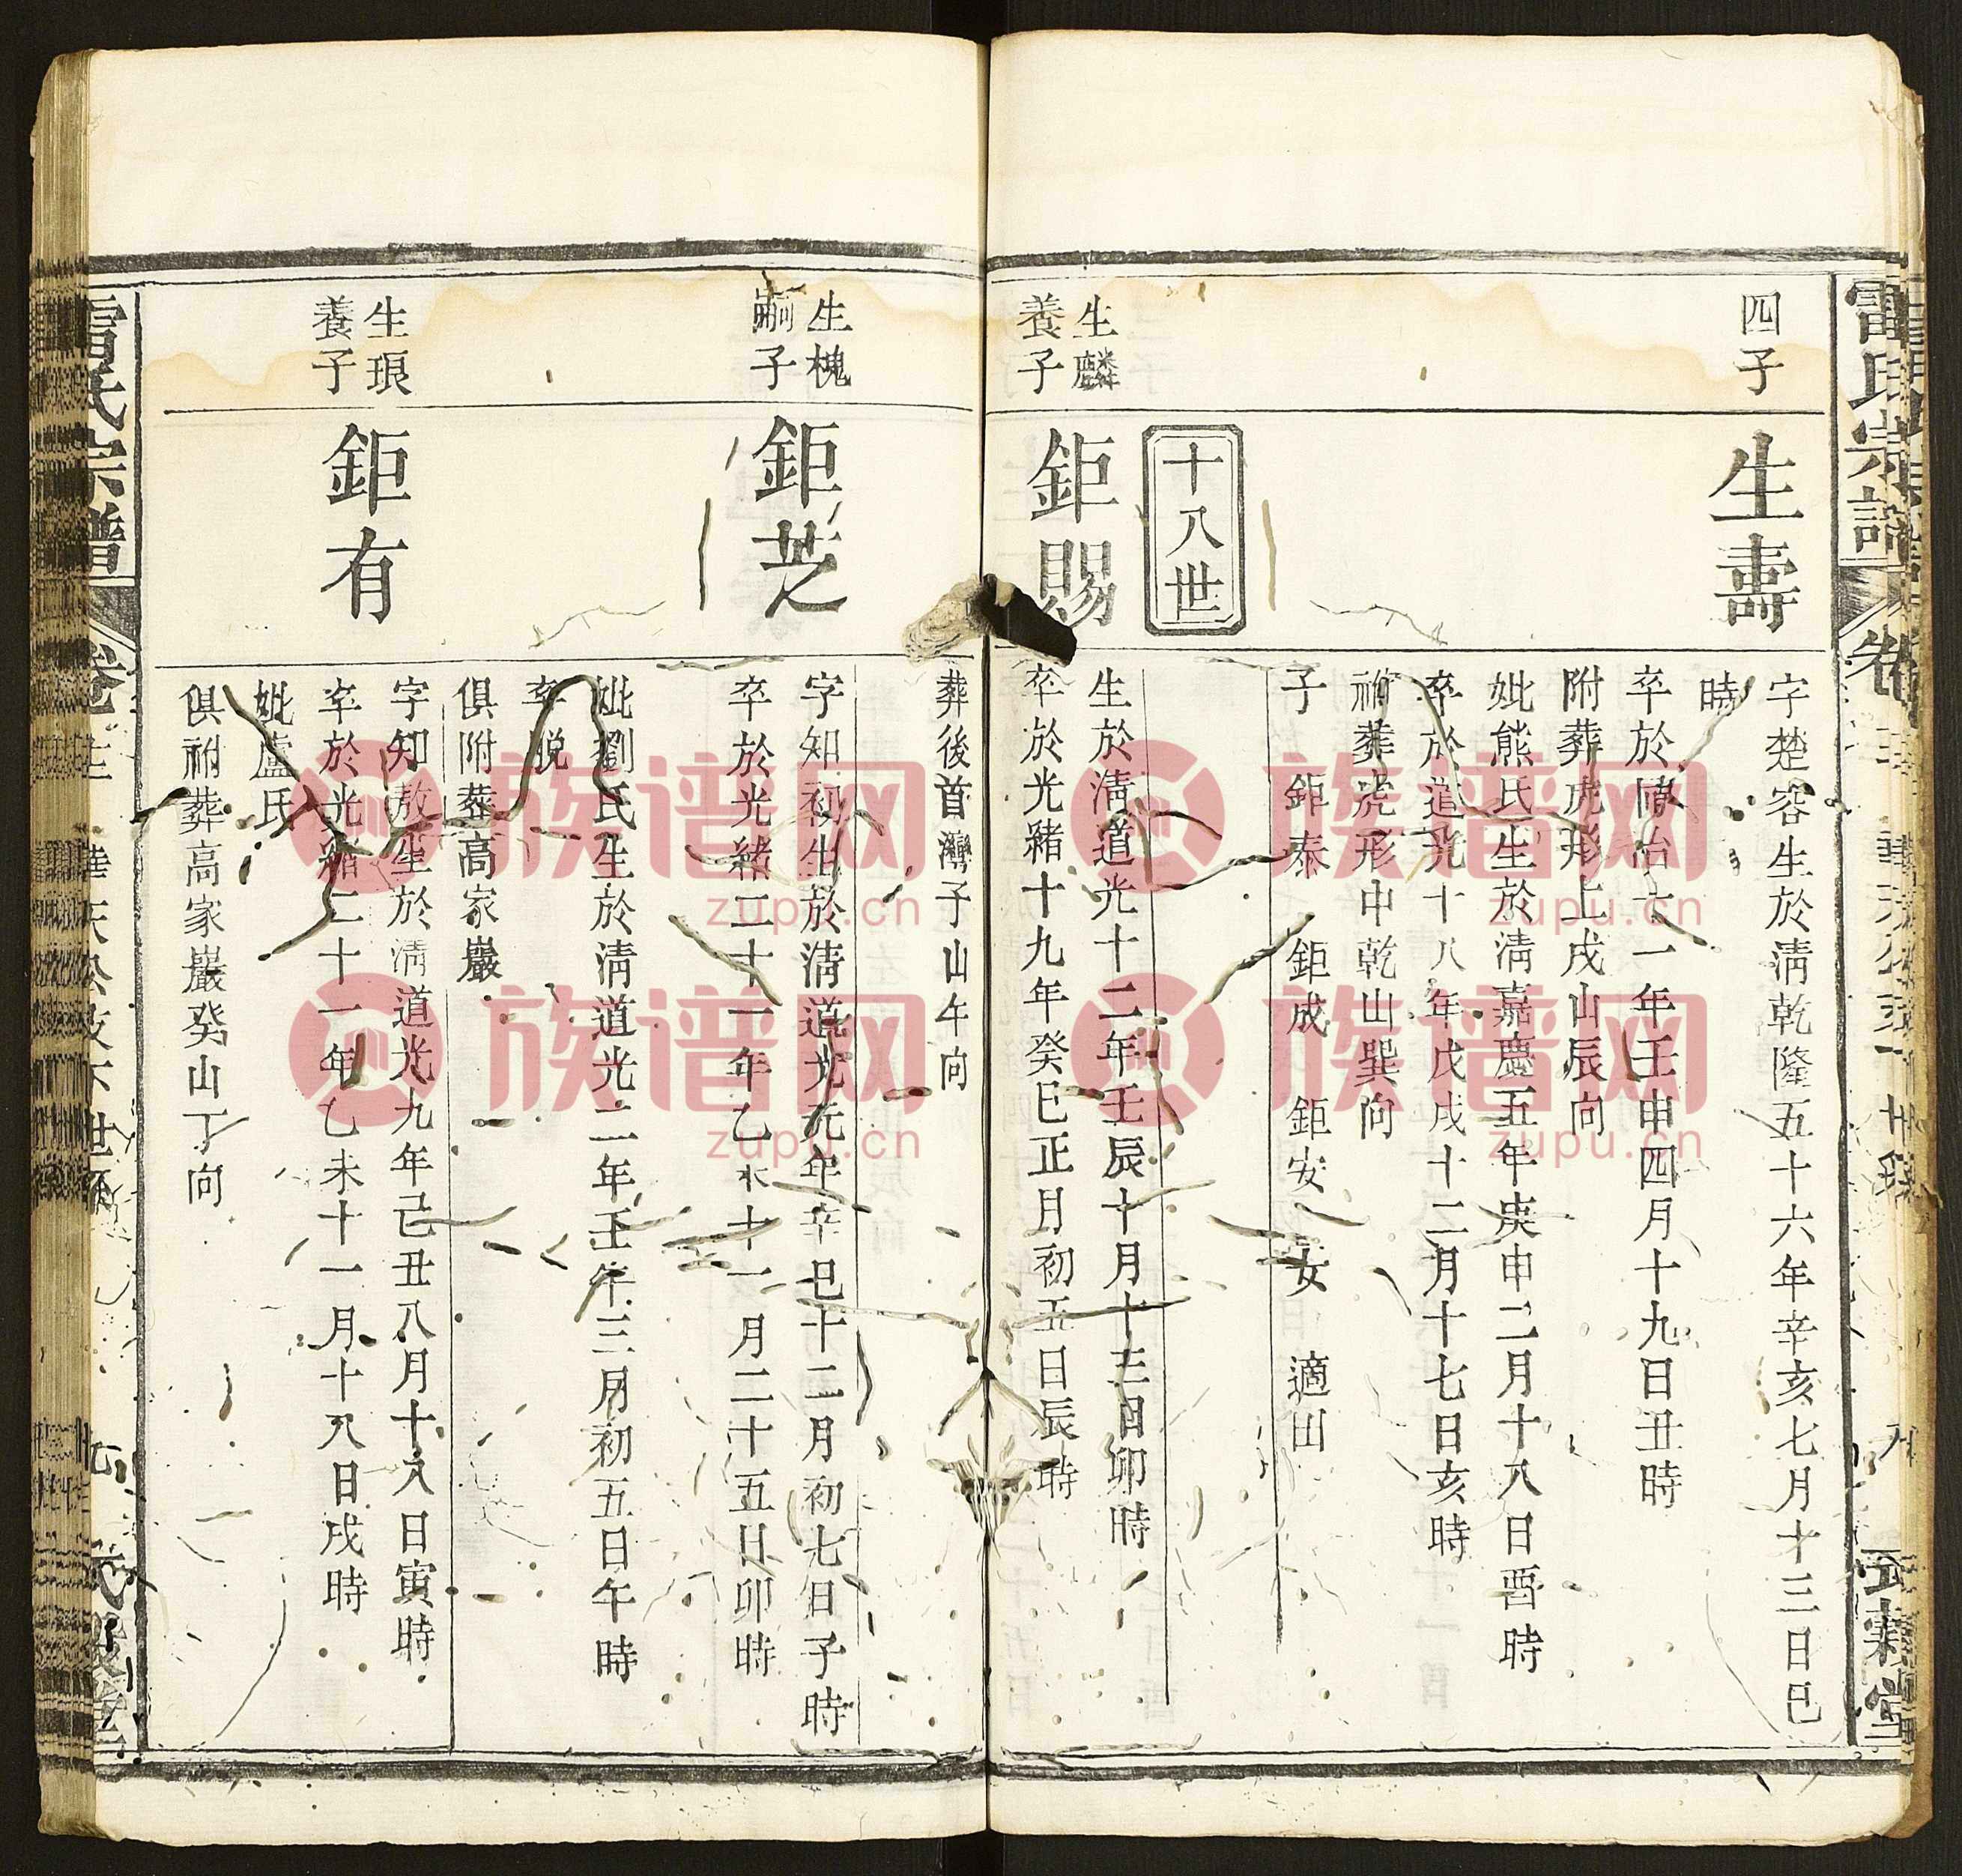 雷氏宗譜
四子
生壽
字楚容生於淸乾隆五十六年辛亥七月十三日巳
時
卒於同治十一年壬申四月十九日丑時
附葬虎形上戌山辰向
妣熊氏生於淸嘉慶五年庚申二月十八日酉時
卒於道光十八年戊戌十二月十七日亥時
祔葬虎形中乾山巽向
子 鉅泰 鉅成 鉅安 女 適山
十八世
生麟
養子
鉅賜
生於淸道光十二年壬辰十月十三日卯時
卒於光緒十九年癸巳正月初五日辰時
葬後首灣子山午向
生槐
嗣子
鉅芝
字知初生於淸道光元年辛巳十二月初七日子時
卒於光緒二十一年乙未十一月二十五日卯時
妣劉氏生於淸道光二年壬午三月初五日午時
卒脱
俱附葬高家巖
生琅
養子
鉅有
字知敖生於淸道光九年己丑八月十八日寅時
卒於光緒二十一年乙未十一月十八日戌時
妣盧氏
俱祔葬高家巖癸山丁向
雷氏宗譜
族谱网
zupu.cn
族谱网
zupu.cn
族谱网
zupu.cn
族谱网
zupu.cn